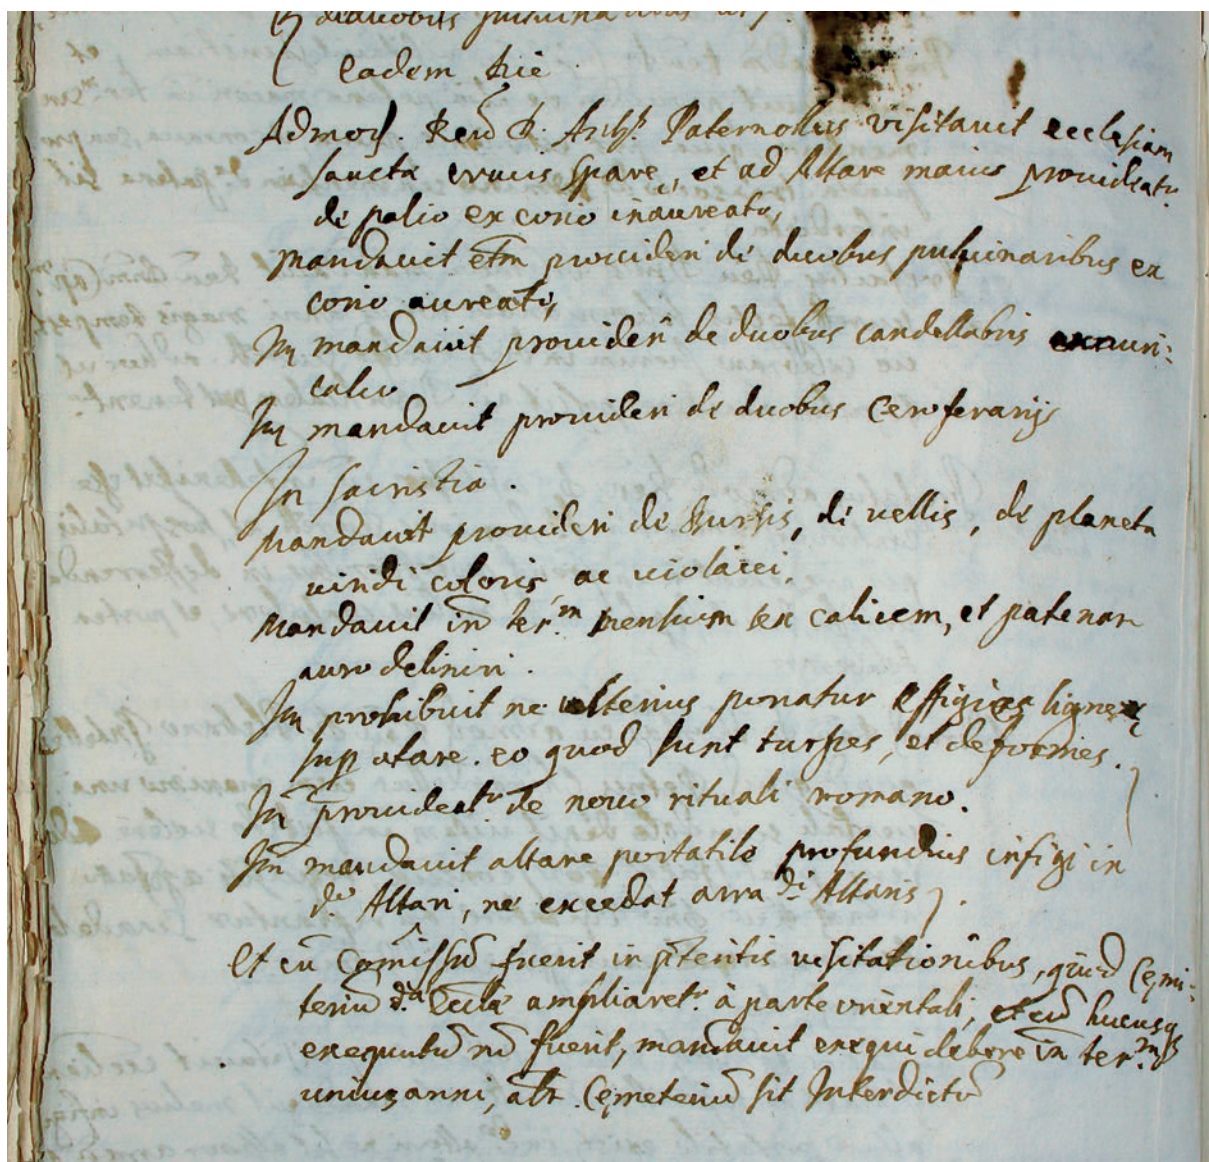 eadem die
Admod. Rend. D. Archip. Paternollus visitavit ecclesiam
sancta crucis Spare, et ad Altare maius provideatr
de palio ex corio inaureato,
Mandavit etm provideri de duobus pulvinaribus ex
corio aureato,
mandavit provideri de duobus candellabris exauri:
calco
mandavit provideri de duobus Ceroferarijs
In sacristia.
Mandavit provideri de Bursis, de vellis, de planeta
viridi coloris ac violacei.
Mandavit in ter.m mensium sex calicem, et patenam
auro deliniri.
prohibuit ne ulterius ponatur effigies ligneę
sup altare. eo quod sunt turpes, et deformes.
provideatr de novo rituali romano.
Itm mandavit altare portatile profundius infigi in
do Altari, ne excedat arra di Altaris.
Et cu Comissu fuerit in pteritis visitationibus, quod Cęmi:
teriu da Eccla ampliaretr à parte orientali, et cu hucusq
exequutu no fuerit, mandavit exequi debere in ter.m
unius anni, alt. Cęmeteriu sit Interdictu